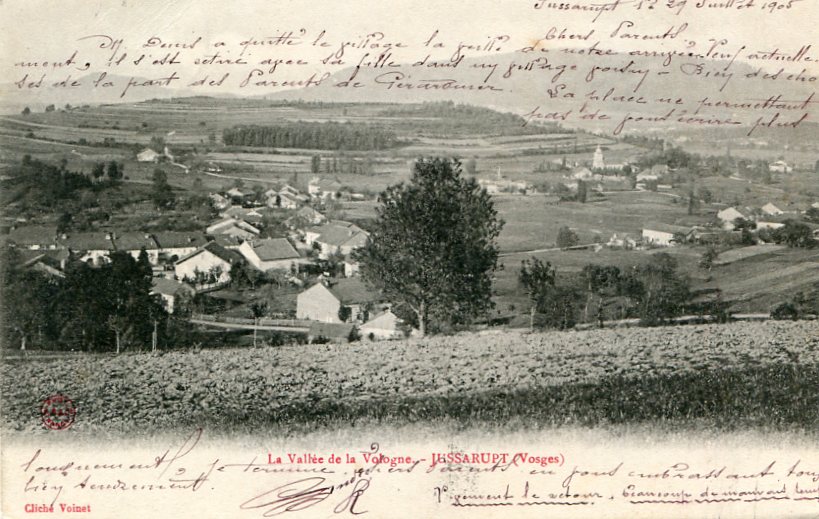 Jussarupt le 29 Juillet 1905
Chers Parents.
M Denis a quitté le village la veille de notre arrivée. Pour actuelle-
ment, il s'est retiré avec sa fille dans un village voisin — Bien des cho-
ses de la part des Parents de Gérardmer
La place ne permettant
pas de vous écrire plus
longuement, je termine chers Parents, en vous embrassant tous
bien tendrement
Vivement le retour. Beaucoup de mauvais
La Vallée de la Vologne. - JUSSARUPT (Vosges)
Cliché Voinet